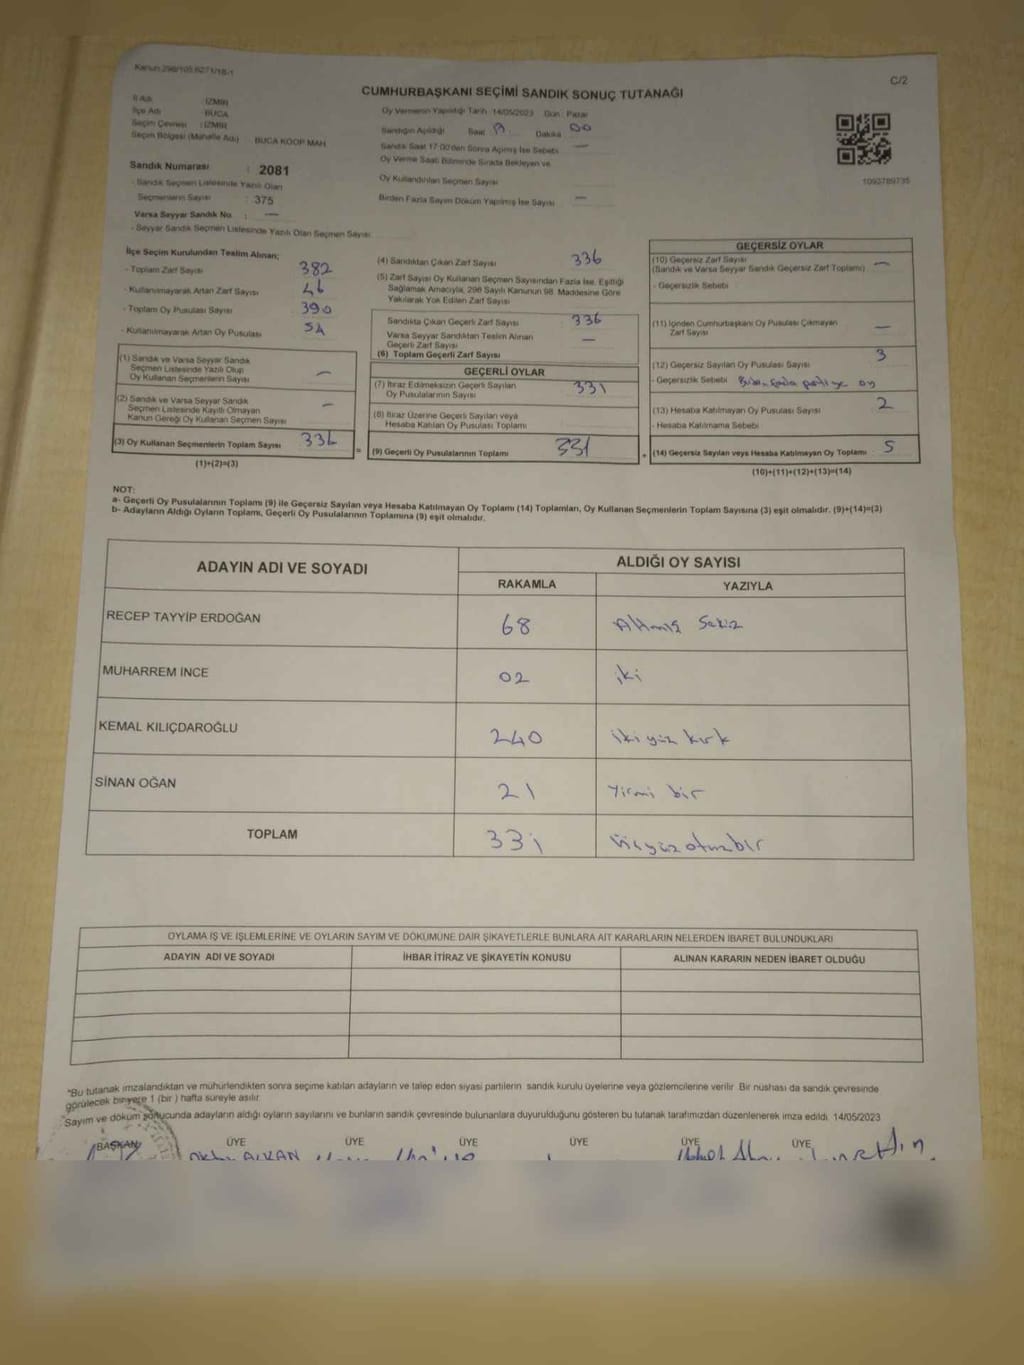 Kanun:298/105,6271/18-1
C/2
CUMHURBAŞKANI SEÇİMİ SANDIK SONUÇ TUTANAĞI
İl Adı : İZMİR
İlçe Adı : BUCA
Seçim Çevresi : İZMİR
Seçim Bölgesi (Mahalle Adı) : BUCA KOOP MAH
Oy Vermenin Yapıldığı Tarih : 14/05/2023 Gün : Pazar
Sandığın Açıldığı Saat Dakika 00
Sandık Saat 17:00'den Sonra Açılmış İse Sebebi —
Oy Verme Saati Bitiminde Sırada Bekleyen ve
Oy Kullandırılan Seçmen Sayısı
Birden Fazla Sayım Döküm Yapılmış İse Sayısı —
1093789735
Sandık Numarası : 2081
- Sandık Seçmen Listesinde Yazılı Olan
Seçmenlerin Sayısı : 375
Varsa Seyyar Sandık No : —
- Seyyar Sandık Seçmen Listesinde Yazılı Olan Seçmen Sayısı:
İlçe Seçim Kurulundan Teslim Alınan;
- Toplam Zarf Sayısı 382
- Kullanılmayarak Artan Zarf Sayısı 46
- Toplam Oy Pusulası Sayısı 390
- Kullanılmayarak Artan Oy Pusulası 54
(1) Sandık ve Varsa Seyyar Sandık
Seçmen Listesinde Yazılı Olup
Oy Kullanan Seçmenlerin Sayısı —
(2) Sandık ve Varsa Seyyar Sandık
Seçmen Listesinde Kayıtlı Olmayan
Kanun Gereği Oy Kullanan Seçmen Sayısı —
(3) Oy Kullanan Seçmenlerin Toplam Sayısı 336
(1)+(2)=(3)
(4) Sandıktan Çıkan Zarf Sayısı 336
(5) Zarf Sayısı Oy Kullanan Seçmen Sayısından Fazla İse, Eşitliği
Sağlamak Amacıyla, 298 Sayılı Kanunun 98. Maddesine Göre
Yakılarak Yok Edilen Zarf Sayısı
Sandıkta Çıkan Geçerli Zarf Sayısı 336
Varsa Seyyar Sandıktan Teslim Alınan
Geçerli Zarf Sayısı —
(6) Toplam Geçerli Zarf Sayısı
GEÇERLİ OYLAR
(7) İtiraz Edilmeksizin Geçerli Sayılan
Oy Pusulalarının Sayısı 331
(8) İtiraz Üzerine Geçerli Sayılan veya
Hesaba Katılan Oy Pusulası Toplamı
= (9) Geçerli Oy Pusulalarının Toplamı 331
GEÇERSİZ OYLAR
(10) Geçersiz Zarf Sayısı
(Sandık ve Varsa Seyyar Sandık Geçersiz Zarf Toplamı) —
- Geçersizlik Sebebi
(11) İçinden Cumhurbaşkanı Oy Pusulası Çıkmayan
Zarf Sayısı —
(12) Geçersiz Sayılan Oy Pusulası Sayısı 3
- Geçersizlik Sebebi partiye oy
(13) Hesaba Katılmayan Oy Pusulası Sayısı 2
- Hesaba Katılmama Sebebi
+ (14) Geçersiz Sayılan veya Hesaba Katılmayan Oy Toplamı 5
(10)+(11)+(12)+(13)=(14)
NOT:
a- Geçerli Oy Pusulalarının Toplamı (9) ile Geçersiz Sayılan veya Hesaba Katılmayan Oy Toplamı (14) Toplamları, Oy Kullanan Seçmenlerin Toplam Sayısına (3) eşit olmalıdır. (9)+(14)=(3)
b- Adayların Aldığı Oyların Toplamı, Geçerli Oy Pusulalarının Toplamına (9) eşit olmalıdır.
ADAYIN ADI VE SOYADI
ALDIĞI OY SAYISI
RAKAMLA YAZIYLA
RECEP TAYYİP ERDOĞAN 68 Altmış Sekiz
MUHARREM İNCE 02 iki
KEMAL KILIÇDAROĞLU 240 iki yüz kırk
SİNAN OĞAN 21 Yirmi bir
TOPLAM 331 Üçyüzotuzbir
OYLAMA İŞ VE İŞLEMLERİNE VE OYLARIN SAYIM VE DÖKÜMÜNE DAİR ŞİKAYETLERLE BUNLARA AİT KARARLARIN NELERDEN İBARET BULUNDUKLARI
ADAYIN ADI VE SOYADI İHBAR İTİRAZ VE ŞİKAYETİN KONUSU ALINAN KARARIN NEDEN İBARET OLDUĞU
*Bu tutanak imzalandıktan ve mühürlendikten sonra seçime katılan adayların ve talep eden siyasi partilerin sandık kurulu üyelerine veya gözlemcilerine verilir. Bir nüshası da sandık çevresinde
görülecek bir yere 1 (bir ) hafta süreyle asılır.
Sayım ve döküm sonucunda adayların aldığı oyların sayılarını ve bunların sandık çevresinde bulunanlara duyurulduğunu gösteren bu tutanak tarafımızdan düzenlenerek imza edildi. 14/05/2023
BAŞKAN ÜYE ÜYE ÜYE ÜYE ÜYE ÜYE